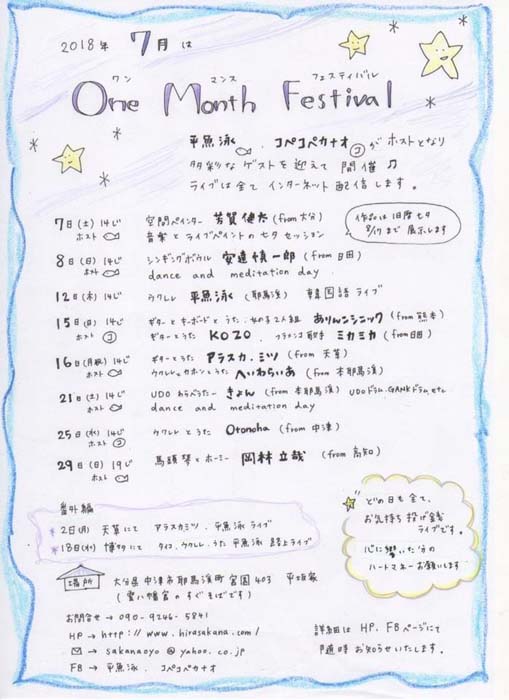 2018年 7月 は
ワン マンス フェスティバル
One Month Festival
平魚泳、コペコペカナオ コ がホストとなり
多彩なゲストを迎えて開催♫
ライブは全てインターネット配信します。
7日(土)14じ 空間ペインター 芳賀健太(from大分)
ホスト 音楽とライブペイントの七夕セッション
作品は旧暦七夕
8/17まで展示します
8日(日)14じ シンギングボウル 安達慎一郎(from日田)
ホスト dance and meditation day
12日(木)14じ ウクレレ 平魚泳(耶馬溪) 韓国語ライブ
15日(日)14じ ギターとキーボードとうた、女の子2人組 ありんコシニック(from熊本)
ホスト コ ギターとうた KOZO、フラメンコ歌手 ミカミカ(from日田)
16日(月祝)14じ ギターとうた アラスカ.ミツ(from天草)
ホスト ウクレレとカホンとうた へいわらいあ(from本耶馬溪)
21日(土)14じ UDO わらべうたー きよん(from本耶馬溪) UDOドラム.GANKドラム.etc
ホスト dance and meditation day
25日(水)14じ ウクレレとうた Otonoha(from中津)
ホスト コ
29日(日)19じ 馬頭琴とホーミー 岡林立哉(from高知)
ホスト
番外編
*2日(月) 天草にて アラスカミツ、平魚泳ライブ
*18日(水) 博多にて タイコ、ウクレレ、うた 平魚泳 路上ライブ
どの日も全て、
お気持ち投げ銭
ライブです。
心に響いた分の
ハートマネーお願いします
場所 大分県中津市耶馬溪町宮園403 平坂家
(雲八幡宮のすぐそばです)
お問合せ→090-9246-5841
HP→http://www.hirasakana.com/
→sakanaoyo@yahoo.co.jp
FB→平魚泳、コペコペカナオ
詳細は HP、FBページにて
随時お知らせいたします。